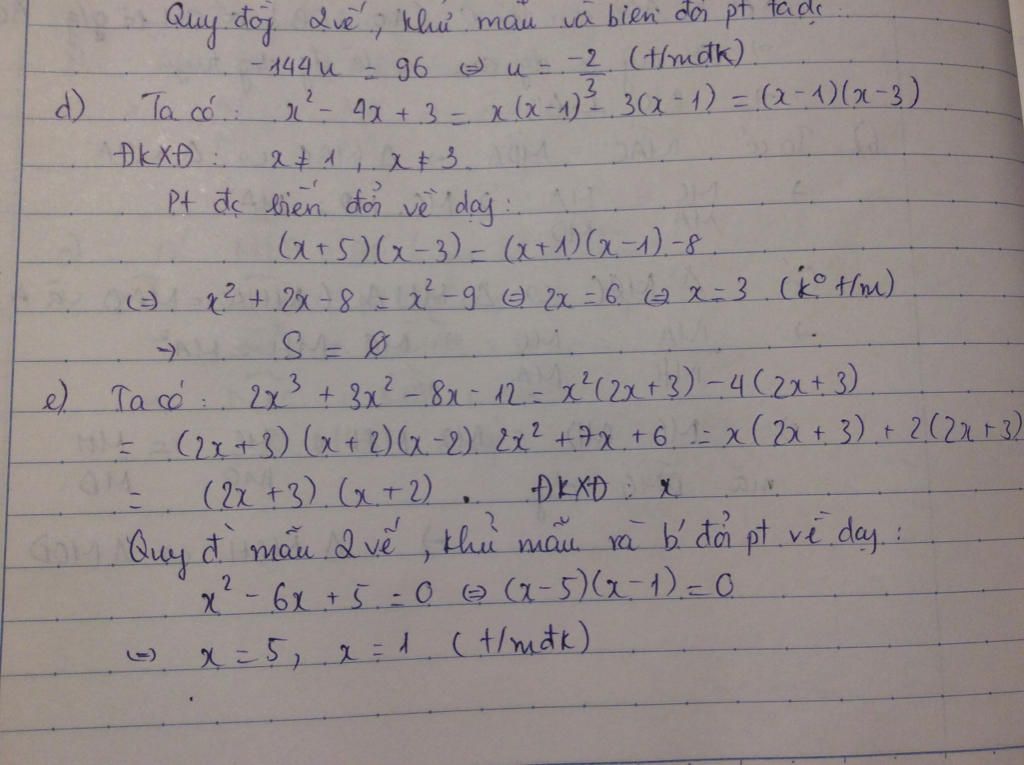 Quy đồng 2 vế, khử mẫu và biến đổi pt ta đc
-144u = 96 ⇔ u = -2/3 (t/mđk)
d) Ta có: x² - 4x + 3 = x(x-1) - 3(x-1) = (x-1)(x-3)
ĐKXĐ: x ≠ 1, x ≠ 3
Pt đc biến đổi về dạng:
(x+5)(x-3) = (x+1)(x-1)-8
⇔ x² + 2x - 8 = x² - 9 ⇔ 2x = 6 ⇔ x = 3 (k° t/m)
→ S = ∅
e) Ta có: 2x³ + 3x² - 8x - 12 = x²(2x+3) - 4(2x+3)
= (2x+3)(x+2)(x-2) 2x² + 7x + 6 = x(2x+3) + 2(2x+3)
= (2x+3)(x+2). ĐKXĐ: x
Quy đ mẫu 2 vế, khử mẫu và b' đổi pt về dạng:
x² - 6x + 5 = 0 ⇔ (x-5)(x-1) = 0
⇔ x = 5, x = 1 (t/mđk)